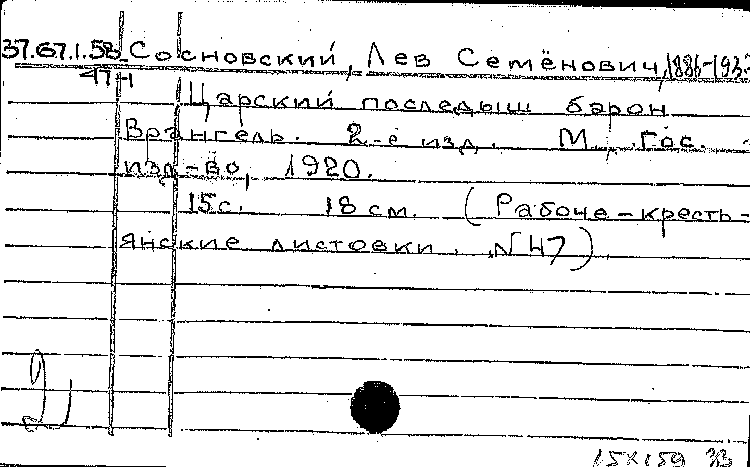 37.67.1.58 Сосновский, Лев Семёнович, 1886-193
47-1
Царский последыш барон
Врангель. 2-е изд. М., Гос.
изд-во, 1920.
15с. 18 см. (Рабоче-кресть-
янские листовки. N 47)
2
15X159